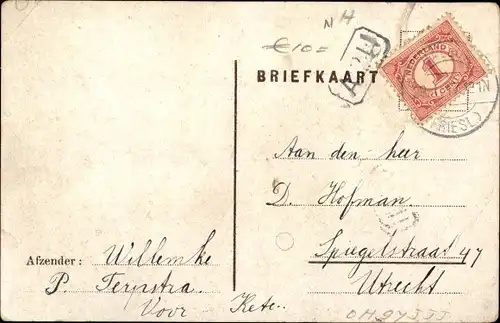 NH
€10=
BRIEFKAART
NEDERLAND
1
CENT
(FRIESL.)
Aan den heer
D. Hofman.
Spiegelstraat 47
Utrecht
Afzender: Willemke
P. Terpstra.
Voor Kete..